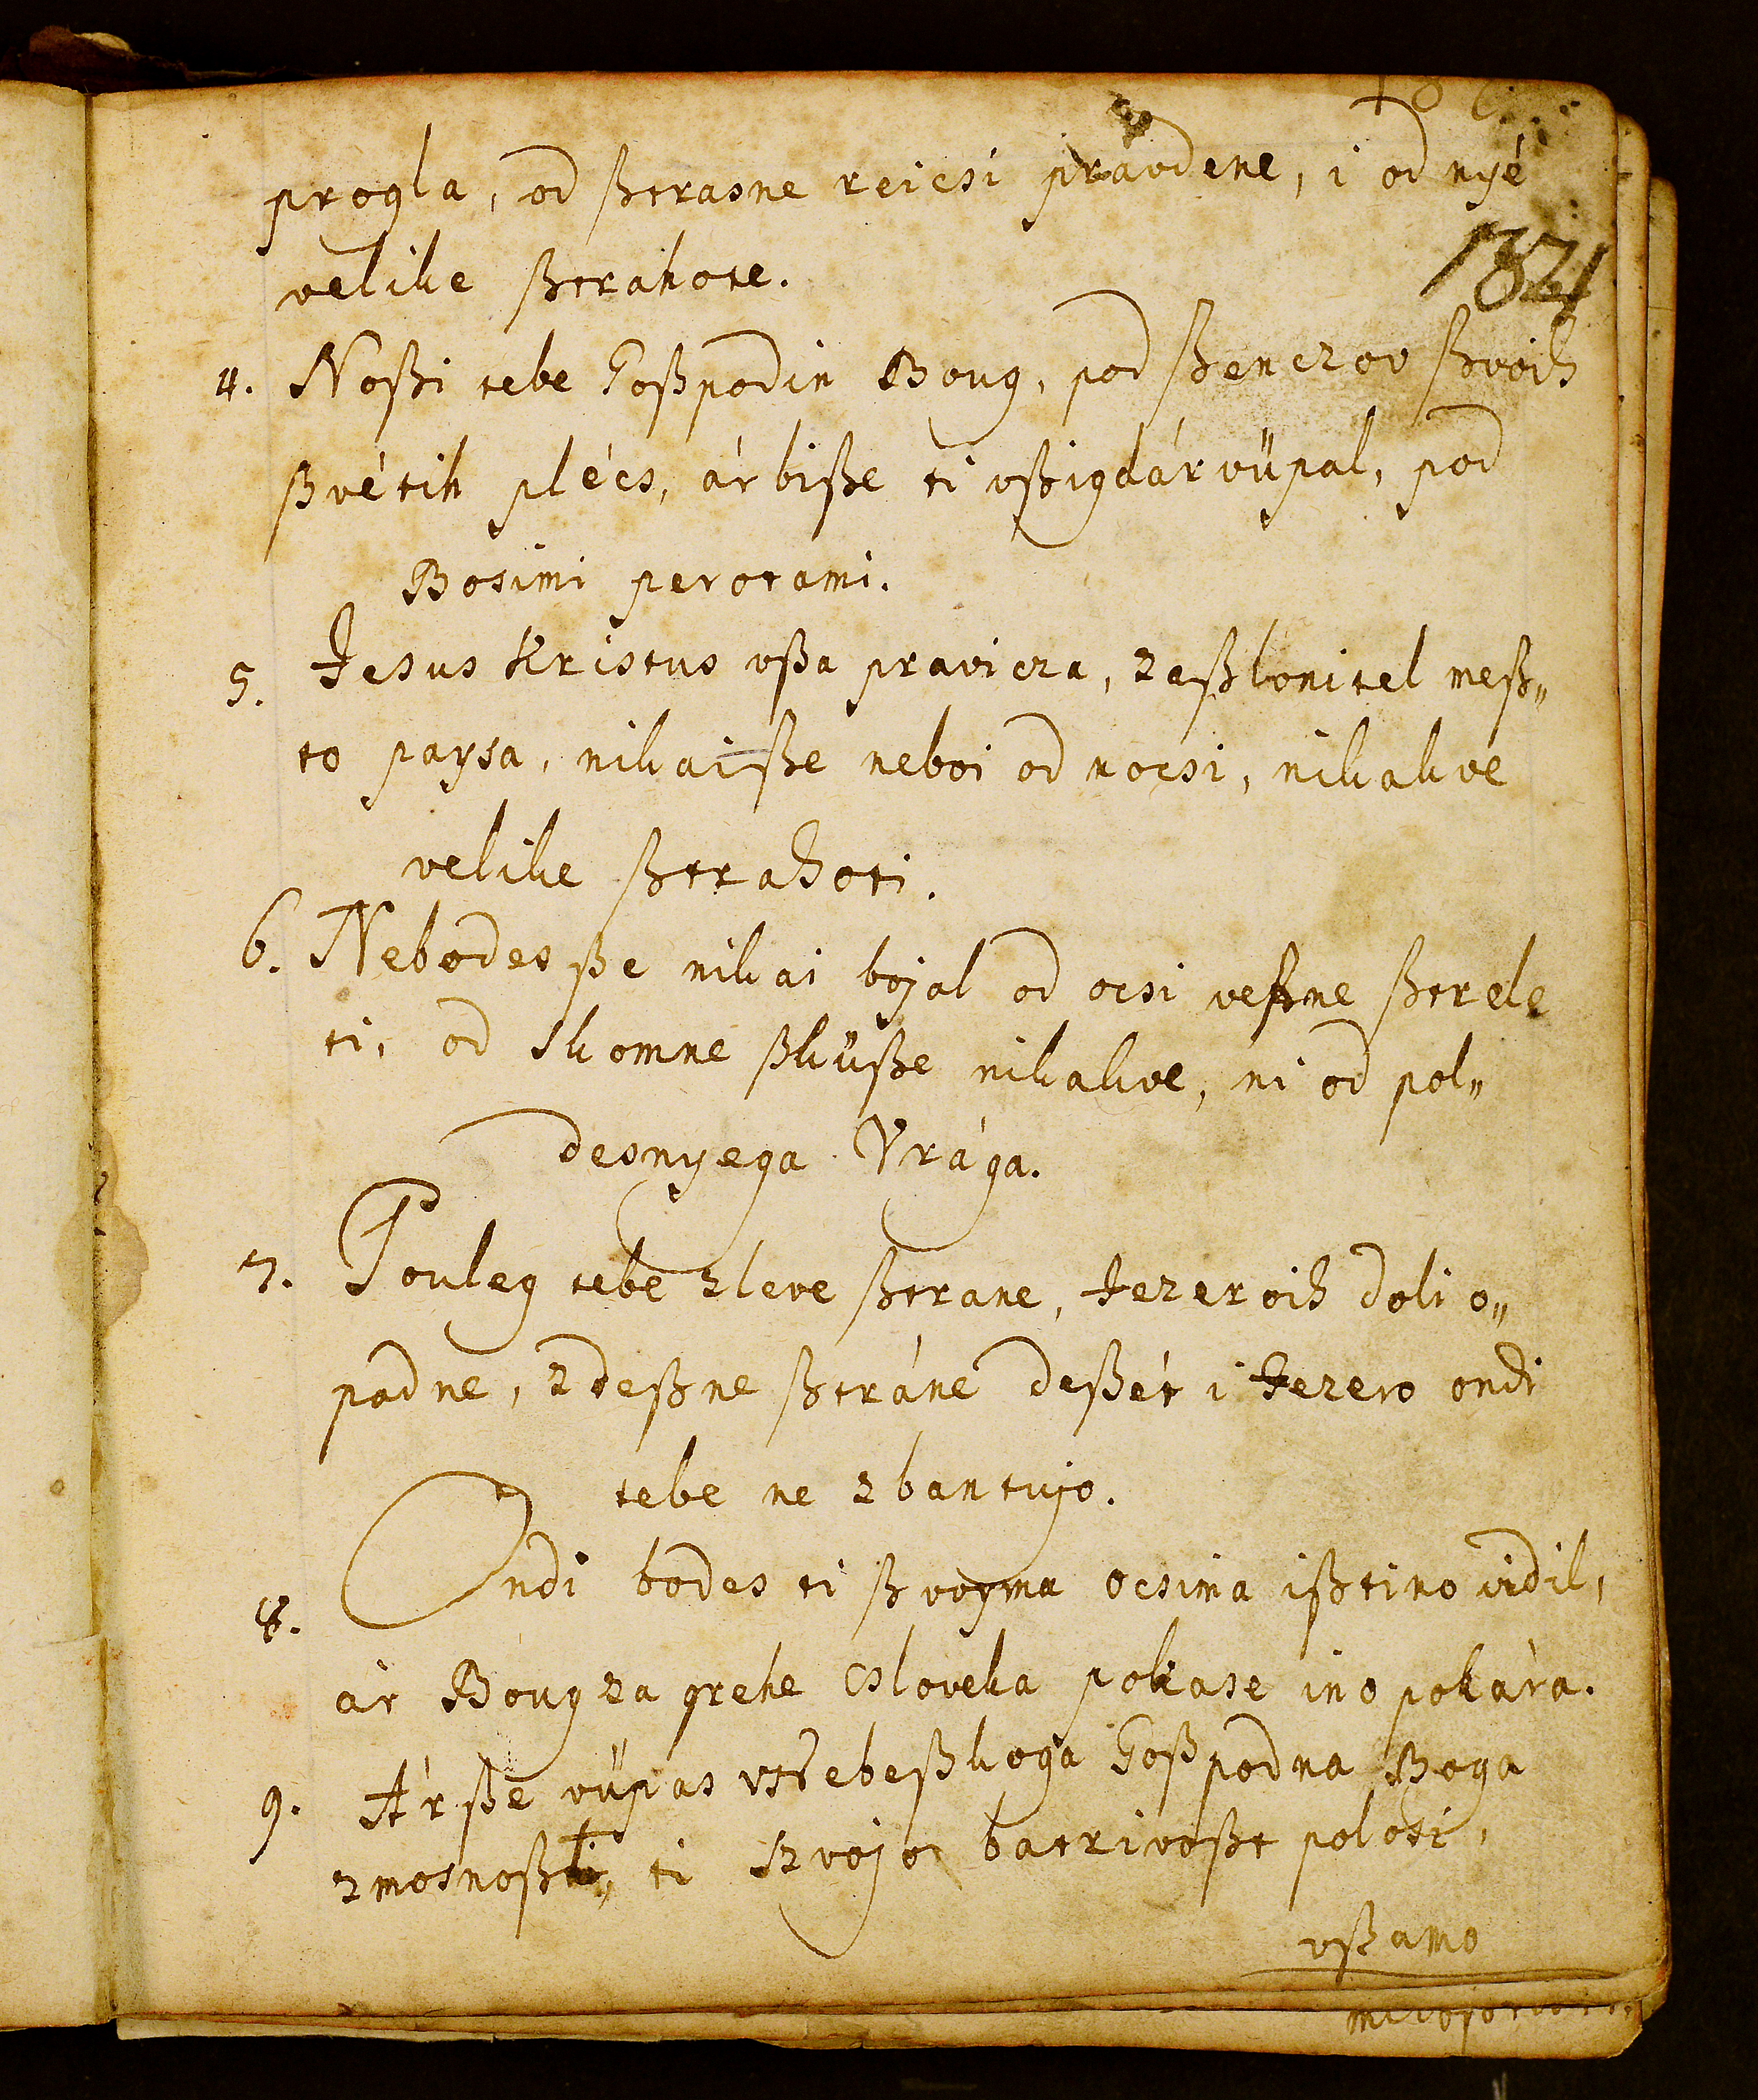 progla, od ßtrasne reicsi pravdene, i od nyé
velike ßtrahote.
1821
4. Noßi tebe Goßpodin Boug, pod ßenczov ßvoih
ßvétih plécs, ár biße ti vßigdár vüpal, pod
Bosimi perotami.
5. Jesus Kristus vßa pravicza, zaßlonitel meß„
to paysa, nikaiße neboi od nocsi, nikakve
velike ßtrahoti.
6. Nebodes ße nikai bojal od ocsi veßne ßtrele
ti, od skomne ßküße nikakve, ni od pol„
desnyega Vrága.
7. Pouleg tebe zleve ßtrane, Jezeroih doli o„
padne, zdeßne ßtráne deßét i Jezero ondi
tebe ne zbantujo.
8. Ondi bodes ti ßvoyma ocsima ißtino vidil,
ár Boug za grehe csloveka pokase ino pokára.
9. Ár ße vüpas vtebeßkoga Goßpodna Boga
zmosnoßti, ti szvojo batrivoßt polosi,
vßamo